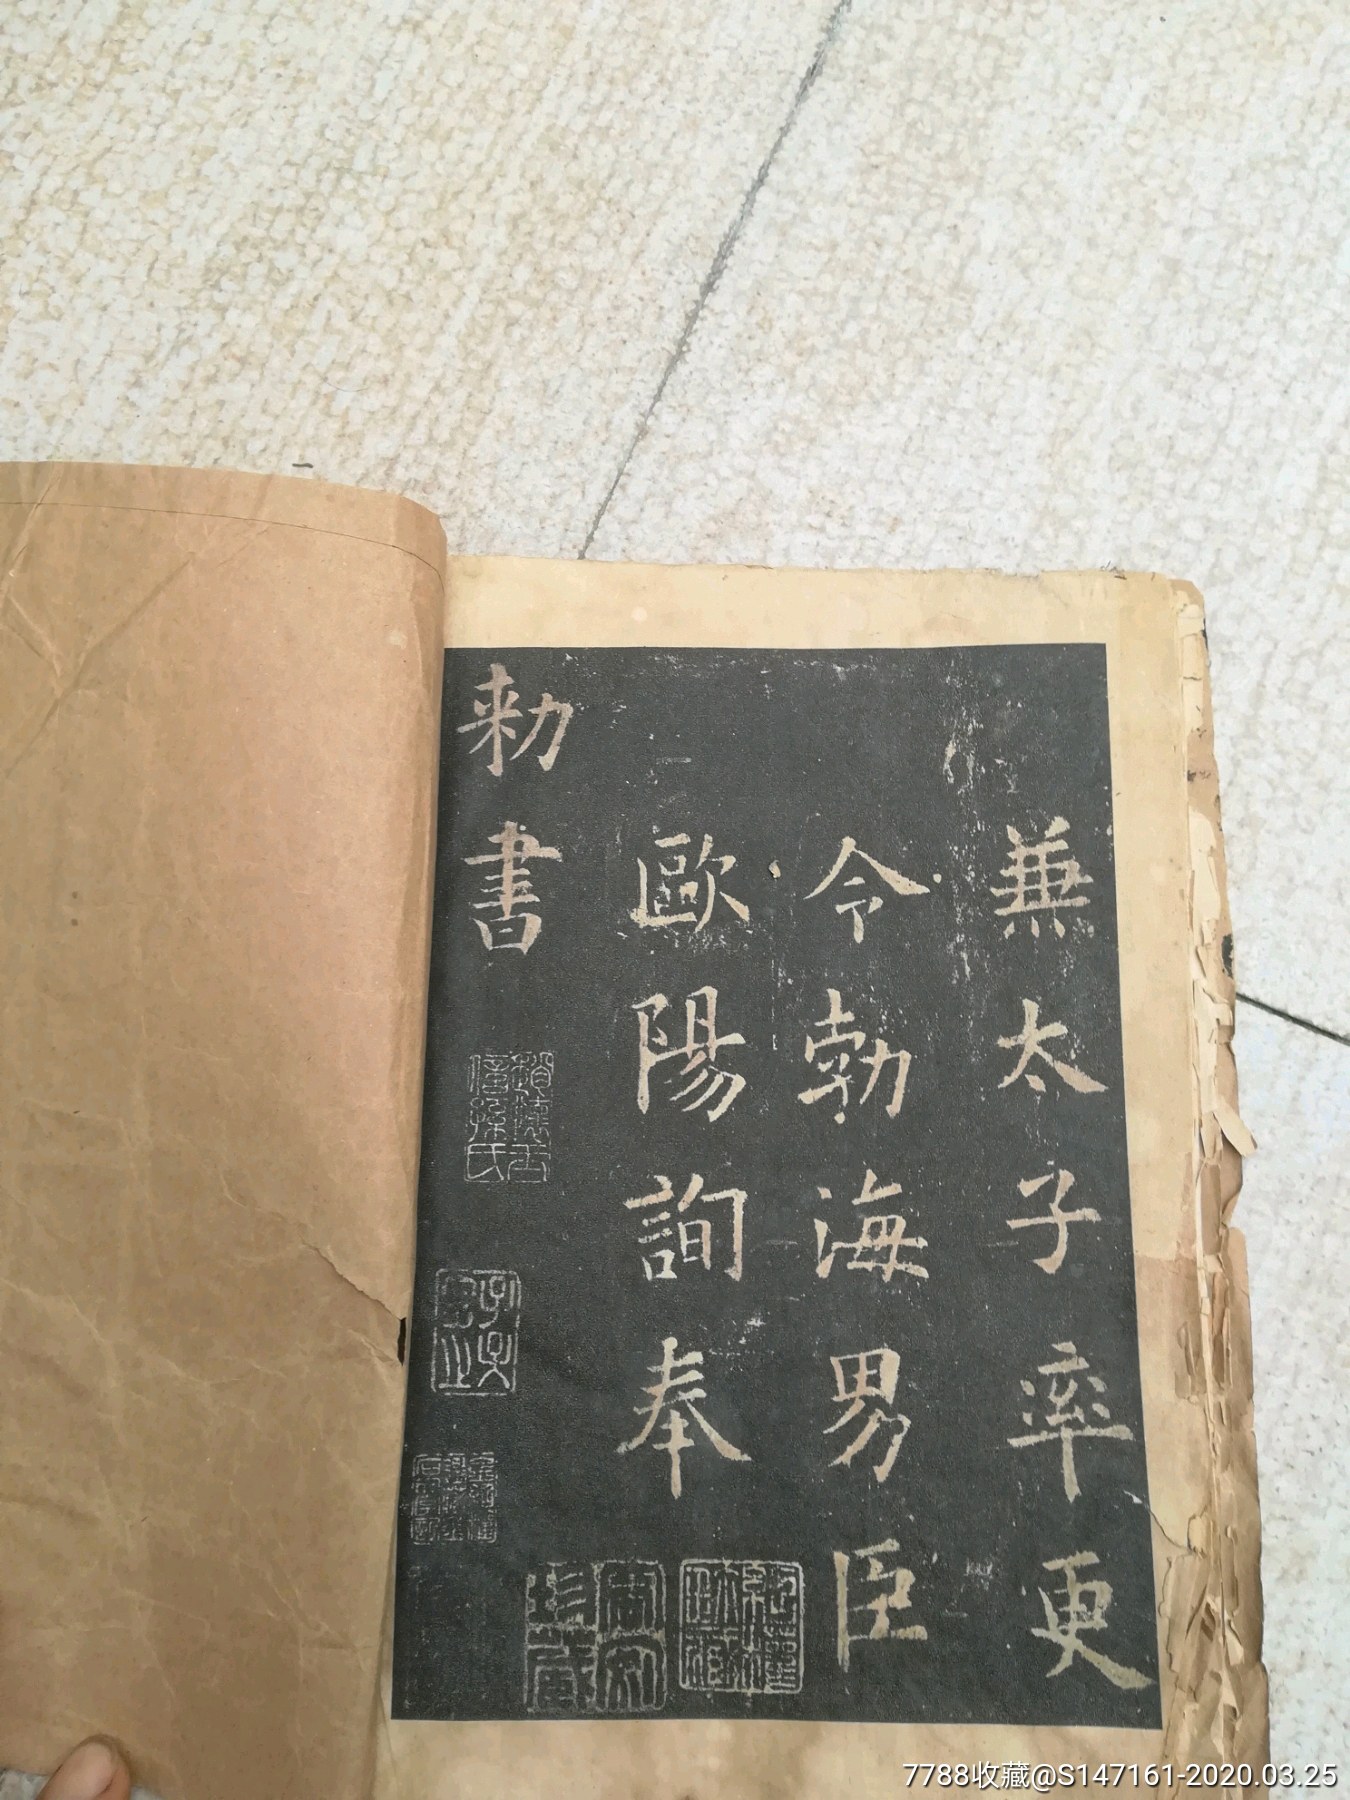 兼太子率更
令勃海男臣
歐陽詢奉
勑書
7788收藏@S147161-2020.03.25